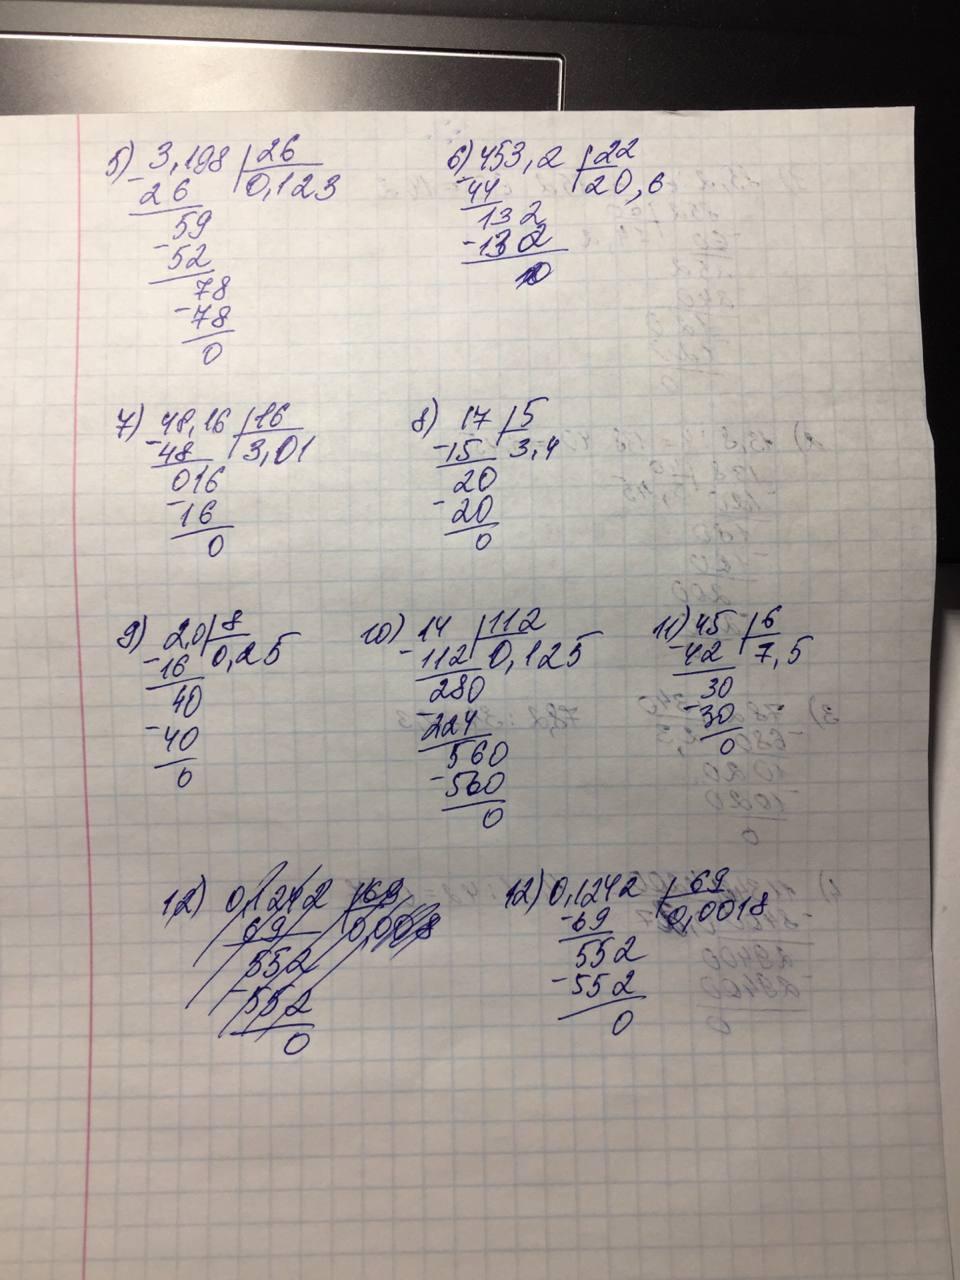 5) 3,198 | 26
- 26 | 0,123
59
- 52
78
- 78
0
6) 453,2 | 22
- 44 | 20,6
132
- 132
0
7) 48,16 | 16
- 48 | 3,01
016
- 16
0
8) 17 | 5
- 15 | 3,4
20
- 20
0
9) 2,0 | 8
- 16 | 0,25
40
- 40
0
10) 14 | 112
- 112 | 0,125
280
- 224
560
- 560
0
11) 45 | 6
- 42 | 7,5
30
- 30
0
12) 0,1242 | 69
69 | 0,008
552
- 552
0
12) 0,1242 | 69
- 69 | 0,0018
552
- 552
0